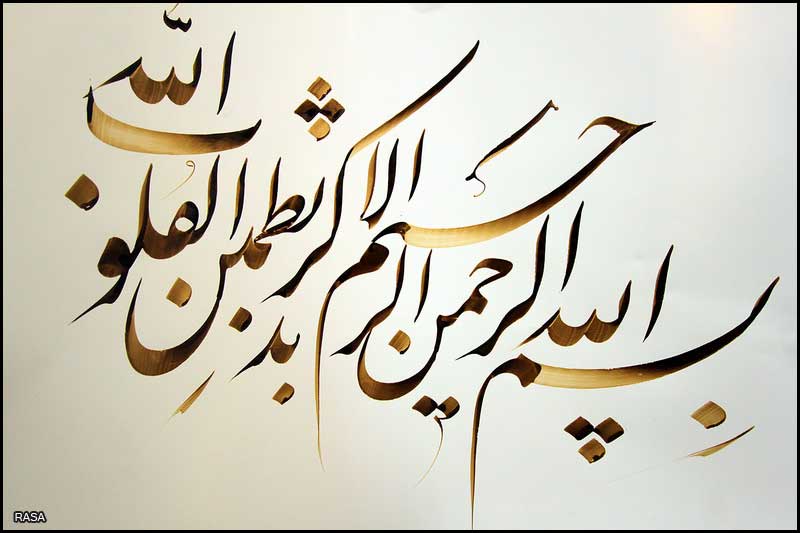 بسم الله الرحمن الرحیم
الا بذکر الله تطمئن القلوب
RASA